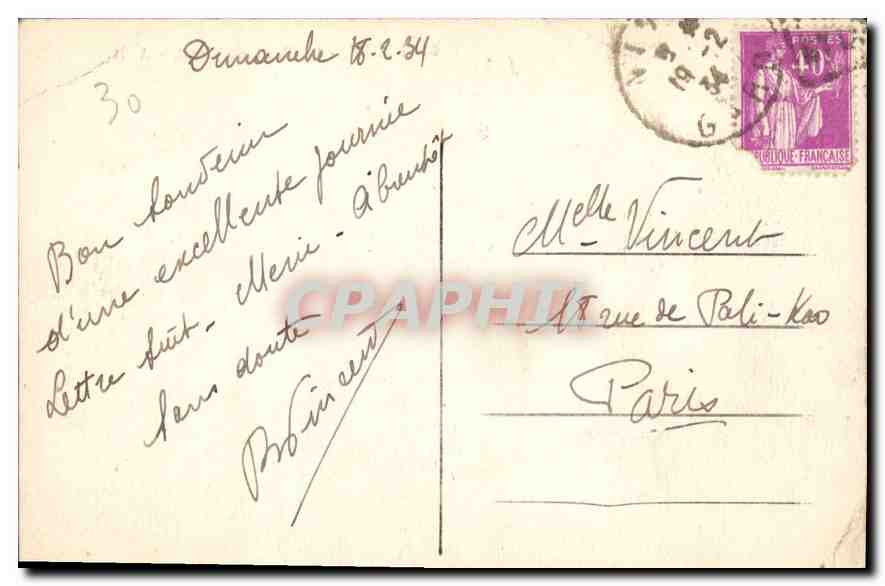 Dimanche 18-2-34
30
Bon souvenir
d'une excellente journée
Lettre suit - Merci - A bientôt
sans doute
Vincent
Melle Vincent
18 rue de Pali-Kao
Paris
POSTES
40
REPUBLIQUE·FRANÇAISE
19 -2
34
GARD
CPARHTI